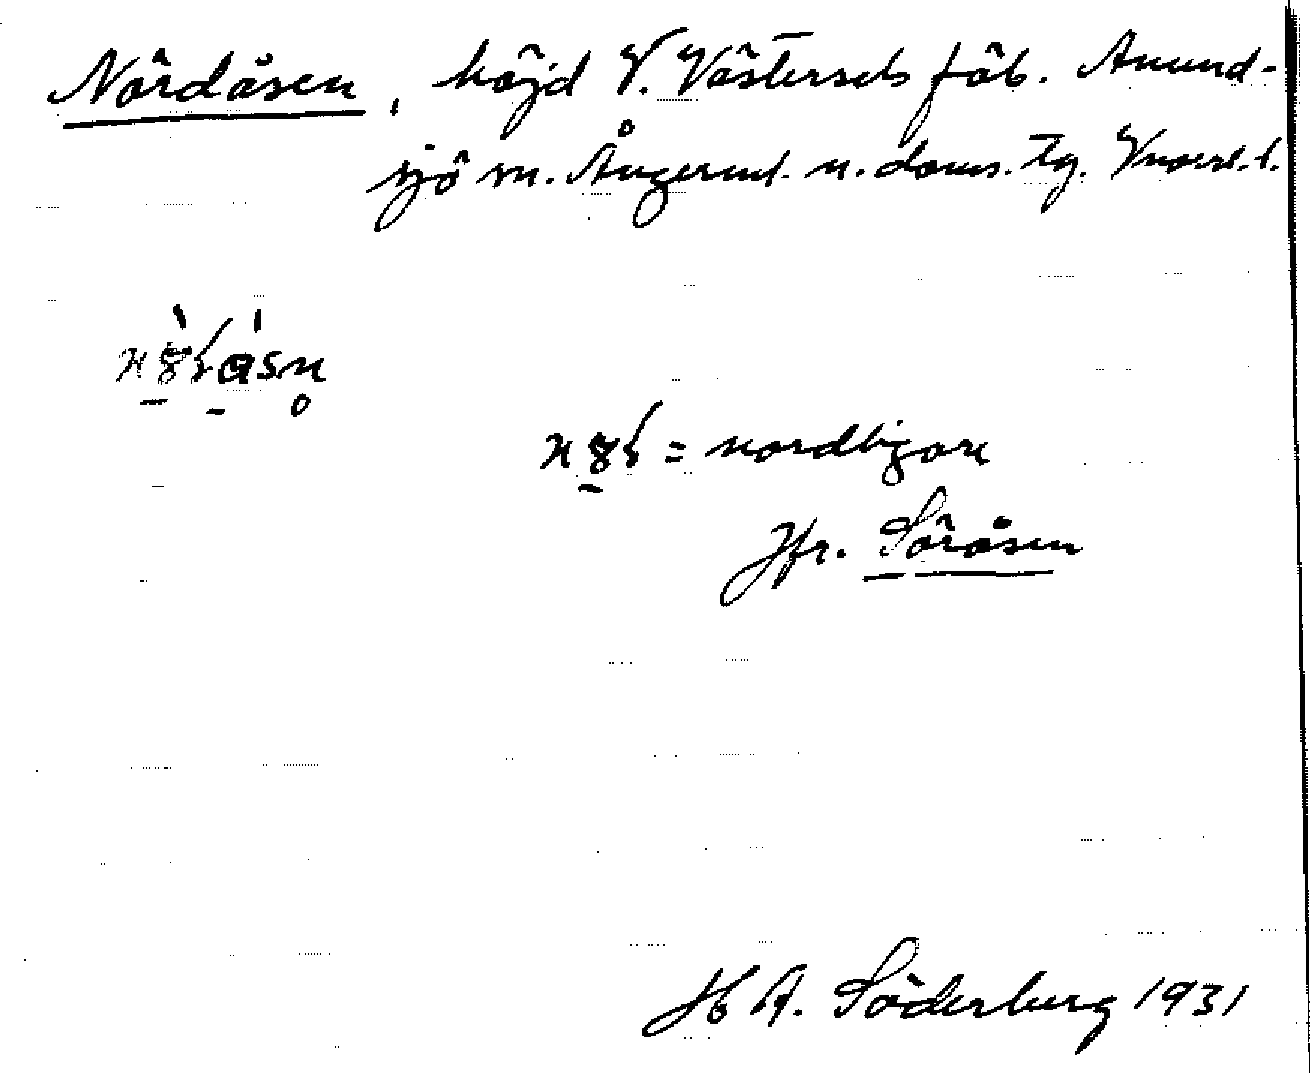 Nördåsen, höjd V. Västersels fäb. Anund-
sjö sn. Ångerml. n. doms. tg. Vnorrl. l.
= nordligare
Jfr. Söråsen
H A. Söderberg 1931